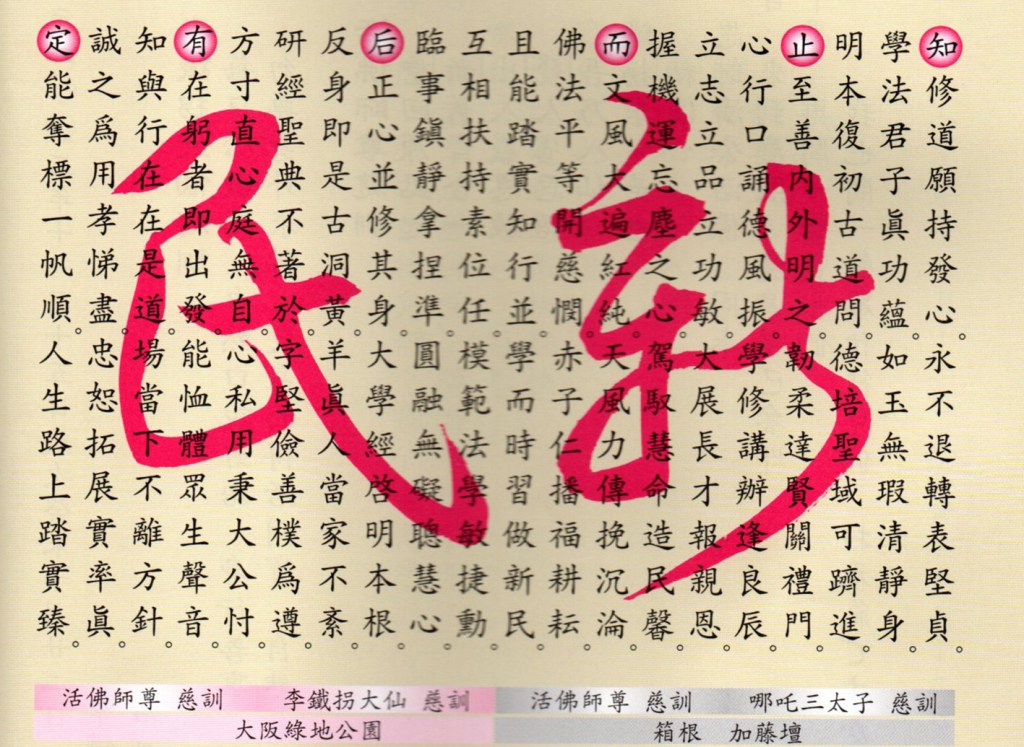 知修道願持發心。永不退轉表堅貞。
學法君子眞功蘊。如玉無瑕清靜身。
明本復初古道問。德培聖域可躋進。
止至善內外明之。韌柔達賢關禮門。
心行口誦德風振。學修講辦逢良辰。
立志立品立功敏。大展長才報親恩。
握機運忘塵之心。駕馭慧命造民馨。
而文風大遍紅純。天風力傳挽沉淪。
佛法平等開慈憫。赤子仁播福耕耘。
且能踏實知行並。學而時習做新民。
互相扶持素位任。模範法學敏捷勳。
臨事鎮靜拿捏準。圓融無礙聰慧心。
后正心並修其身。大學經啓明本根。
反身即是古洞黃。羊眞人當家不紊。
研經聖典不著於。字堅儉善樸爲遵。
方寸直心庭無自。心私用秉大公忖。
有在躬者即出發。能恤體眾生聲音。
知與行在在是道。場當下不離方針。
誠之爲用孝悌盡。忠恕拓展實率眞。
定能奪標一帆順。人生路上踏實臻。
新民
活佛師尊 慈訓 李鐵拐大仙 慈訓
大阪綠地公園
活佛師尊 慈訓 哪吒三太子 慈訓
箱根 加藤壇